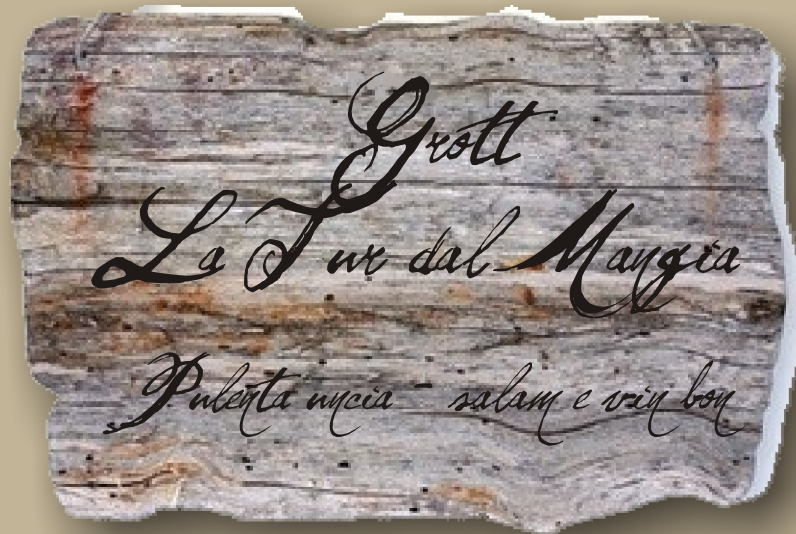 Grott
La Tur dal Mangia
Pulenta uncia - salam e vin bon